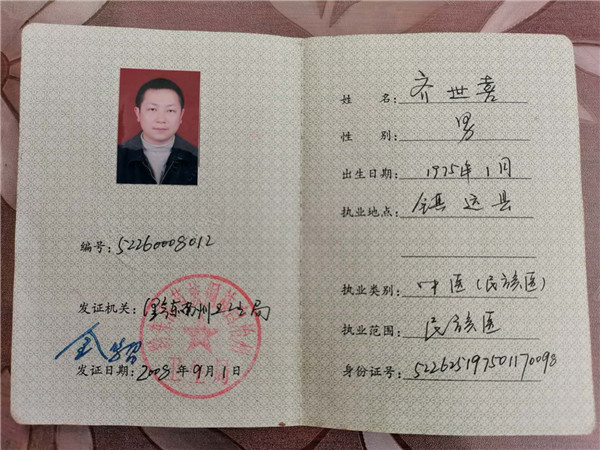 编号: 52260008012
发证机关: 黔东南州卫生局
发证日期: 2008 年 9 月 1 日
姓 名: 齐世喜
性 别: 男
出生日期: 1975年1月
执业地点: 镇远县
执业类别: 中医(民族医)
执业范围: 民族医
身份证号: 522625197501170098